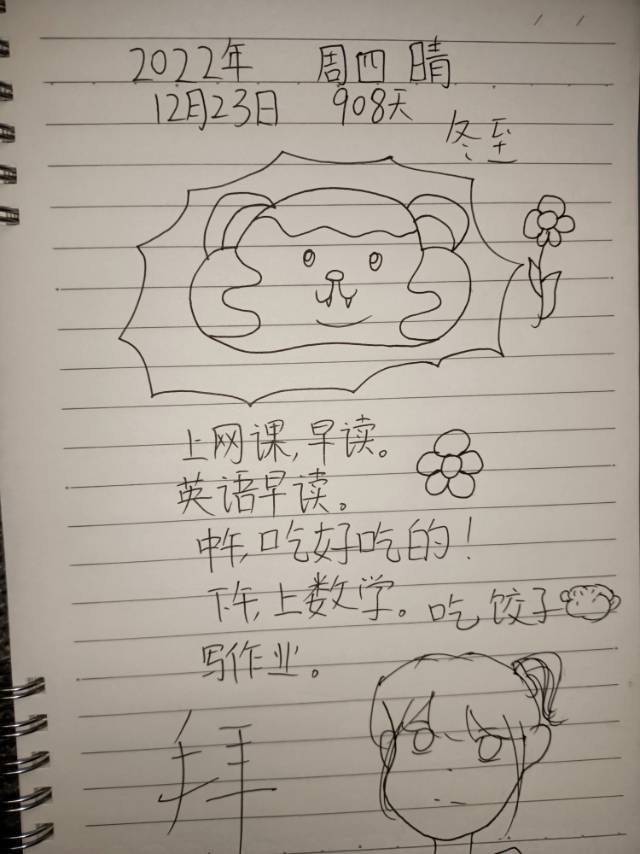 2022年 周四 晴
12月23日 908天
冬至
上网课,早读。
英语早读。
中午,吃好吃的!
下午,上数学。吃饺子
写作业。
拜